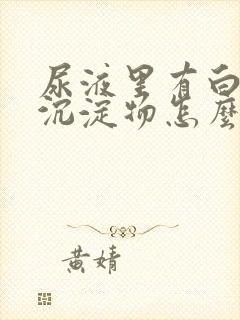 尿液里有白
沉淀物怎麽
黄婧